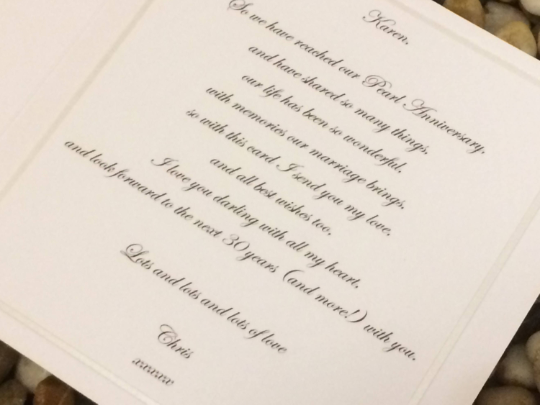 Karen,
So we have reached our Pearl Anniversary,
and have shared so many things,
our life has been so wonderful,
with memories our marriage brings,
so with this card I send you my love,
and all best wishes too.
I love you darling with all my heart,
and look forward to the next 30 years (and more!) with you.
Lots and lots and lots of love
Chris
xxxxxx